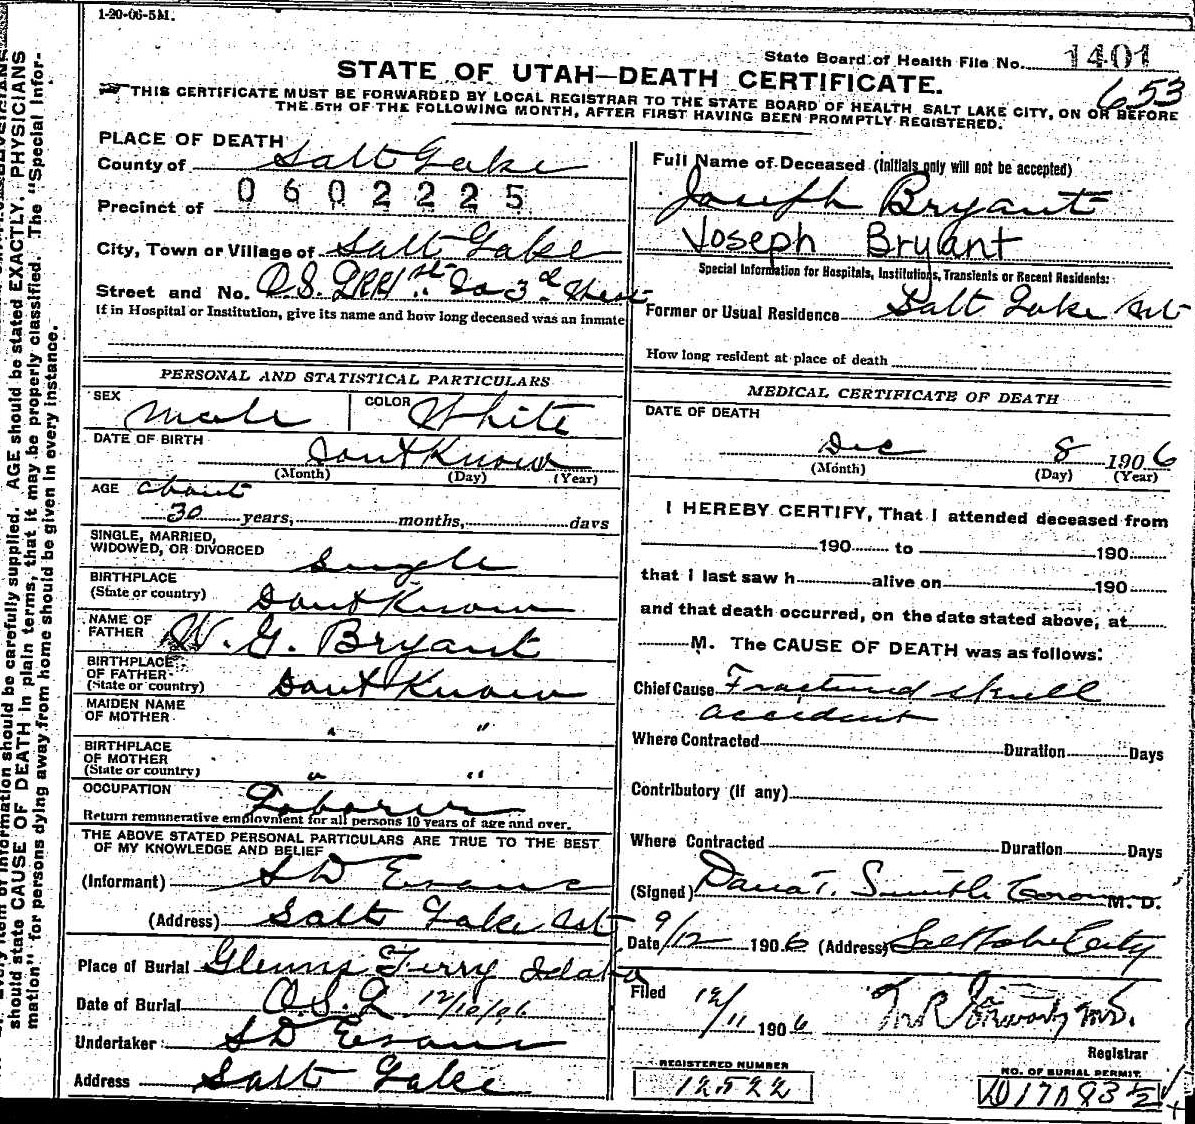 1-20-06-5M.
State Board of Health File No. 1401
STATE OF UTAH—DEATH CERTIFICATE.
653
THIS CERTIFICATE MUST BE FORWARDED BY LOCAL REGISTRAR TO THE STATE BOARD OF HEALTH, SALT LAKE CITY, ON OR BEFORE
THE 5TH OF THE FOLLOWING MONTH, AFTER FIRST HAVING BEEN PROMPTLY REGISTERED.
PLACE OF DEATH
County of Salt Lake
0602225
Precinct of
City, Town or Village of Salt Lake
Street and No. O.S.L.RR 1st So 3d West
If in Hospital or Institution, give its name and how long deceased was an inmate
PERSONAL AND STATISTICAL PARTICULARS
SEX Male COLOR White
DATE OF BIRTH
Dont Know
(Month) (Day) (Year)
AGE about
30 years, months, days
SINGLE, MARRIED,
WIDOWED, OR DIVORCED Single
BIRTHPLACE
(State or country) Dont Know
NAME OF
FATHER W. G. Bryant
BIRTHPLACE
OF FATHER
(State or country) Dont Know
MAIDEN NAME
OF MOTHER " "
BIRTHPLACE
OF MOTHER
(State or country) " "
OCCUPATION Laborer
Return remunerative employment for all persons 10 years of age and over.
THE ABOVE STATED PERSONAL PARTICULARS ARE TRUE TO THE BEST
OF MY KNOWLEDGE AND BELIEF
(Informant) S D Evans
(Address) Salt Lake
Place of Burial Glenns Ferry Idaho
Date of Burial O.S.L 12/10/06
Undertaker S D Evans
Address Salt Lake
Full Name of Deceased (Initials only will not be accepted)
Joseph Bryant
Joseph Bryant
Special Information for Hospitals, Institutions, Transients or Recent Residents:
Former or Usual Residence Salt Lake
How long resident at place of death
MEDICAL CERTIFICATE OF DEATH
DATE OF DEATH
Dec 8 1906
(Month) (Day) (Year)
I HEREBY CERTIFY, That I attended deceased from
190 to 190
that I last saw h alive on 190
and that death occurred, on the date stated above, at
M. The CAUSE OF DEATH was as follows:
Chief Cause Fractured skull
accident
Where Contracted Duration Days
Contributory (if any)
Where Contracted Duration Days
(Signed) Dana T. Smith Coroner M. D.
Date 9/12 1906 (Address) Salt Lake City
Filed 12/11 1906
Registrar
REGISTERED NUMBER
12522
NO. OF BURIAL PERMIT.
should be carefully supplied. AGE should be stated EXACTLY. PHYSICIANS
should state CAUSE OF DEATH in plain terms, that it may be properly classified. The "Special Infor-
mation" for persons dying away from home should be given in every instance.